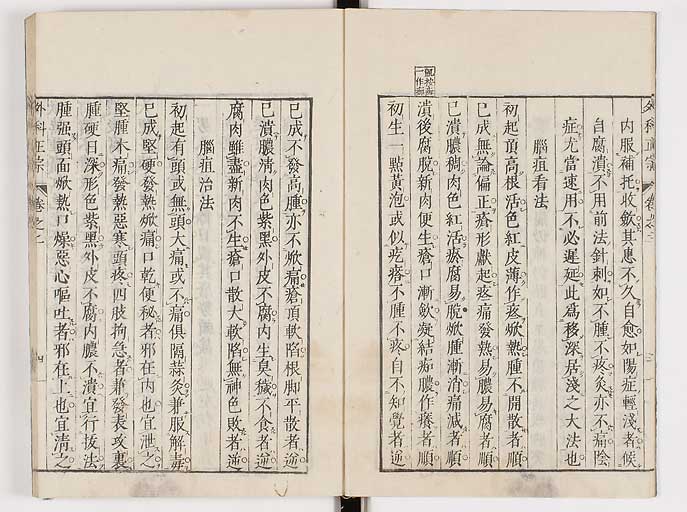 外科正宗 卷之二 三
内服補托收斂其患不久自愈如陽症輕淺者候
自腐潰不用前法針刺如不腫不疼灸亦不痛陰
症尤當速用不必遲延此爲移深居淺之大法也
腦疽看法
初起頂高根活色紅皮薄作疼焮熱腫不開散者順
已成無論偏正瘡形獻起疼痛發熱易膿易腐者順
已潰膿稠肉色紅活瘀腐易脫焮腫漸消痛減者順
潰後腐脫新肉便生瘡口漸斂凝結痂膿作癢者順
初生一點黃泡或似疙瘩不腫不疼自不知覺者逆
已成不發高腫亦不焮痛瘡頂軟陷根脚平散者逆
已潰膿清肉色紫黑外皮不腐内生臭穢不食者逆
腐肉雖盡新肉不生瘡口散大軟陷無神色敗者逆
腦疽治法
初起有頭或無頭大痛或不痛俱隔蒜灸兼服解毒
已成堅硬發熱焮痛口乾便秘者邪在内也宜泄之
堅腫木痛發熱惡寒頭疼四肢拘急者兼發表攻裏
腫硬日深形色紫黑外皮不腐内膿不潰宜行抜法
腫强頭面焮熱口燥惡心嘔吐者邪在上也宜清之
外科正宗 卷之二 四